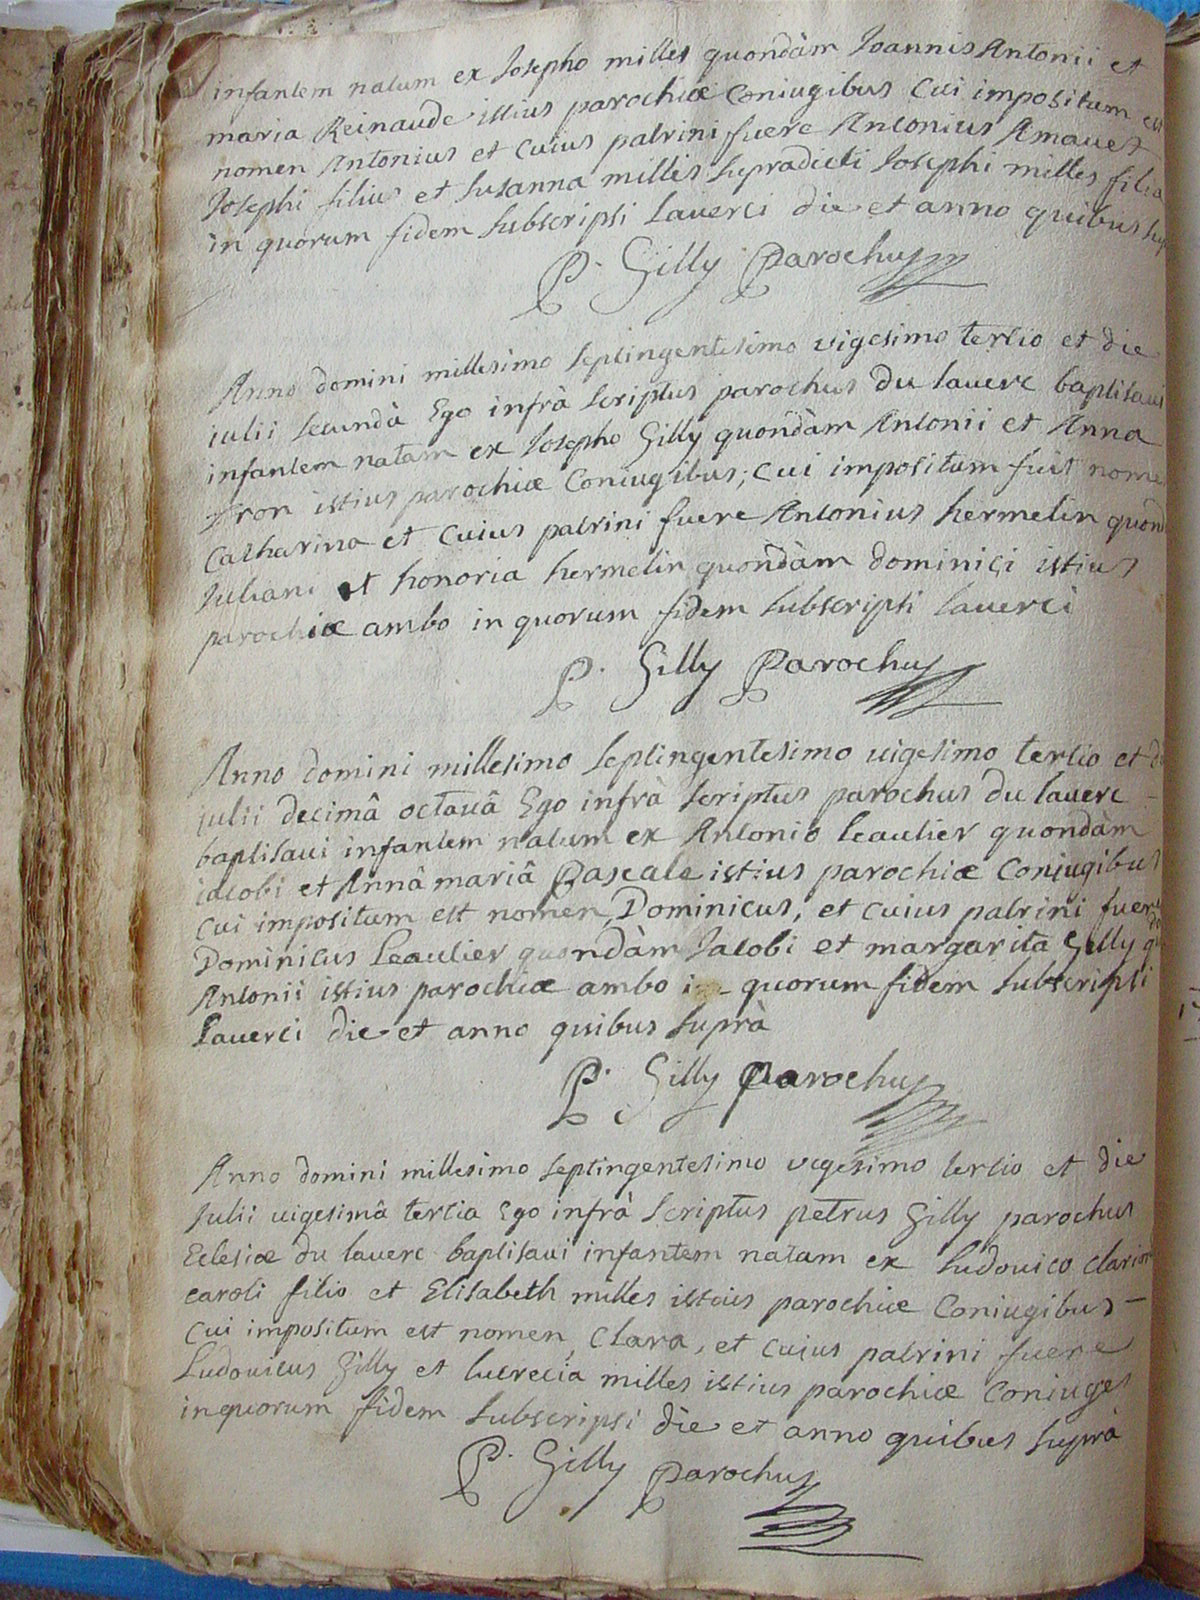 infantem natum ex Josepho milles quondàm Joannis Antonii et
maria Reinaude istius parochiæ Coniugibus Cui impositum est
nomen Antonius et cuius patrini fuere Antonius Amauet
Josephi filius et susanna milles supradicti Josephi milles filia
in quorum fidem subscripsi Lauerci die et anno quibus sup
P. Gilly Parochus
Anno domini millesimo septingentesimo vigesimo tertio et die
iulii secundâ Ego infrà scriptus parochus du lauerc baptisaui
infantem natam ex Josepho Gilly quondàm Antonii et Anna
istius parochiæ Coniugibus; cui impositum fuit nome
Catharina et cuius patrini fuere Antonius hermelin quond
Juliani et honoria hermelin quondàm dominici istius
parochiæ ambo in quorum fidem subscripsi lauerci
P. Gilly Parochus
Anno domini millesimo septingentesimo uigesimo tertio et di
iulii decimâ octauâ Ego infrà scriptus parochus du lauerc
baptisaui infantem natum ex Antonio Leautier quondàm
iacobi et Annâ mariâ Pascale istius parochiæ Coniugibus
cui impositum est nomen Dominicus, et cuius patrini fuere
Dominicus Leautier quondàm Jacobi et margarita Gilly
Antonii istius parochiæ ambo quorum fidem subscripsi
Lauerci die et anno quibus suprà
P. Gilly Parochus
Anno domini millesimo septingentesimo vigesimo tertio et die
Julii uigesimâ tertia Ego infrà scriptus petrus Gilly parochus
Eclesiæ du lauerc baptisaui infantem natam ex Ludouico clarion
caroli filio et Elisabeth milles istius parochiæ Coniugibus -
Cui impositum est nomen Clara, et cuius patrini fuere
Ludouicus Gilly et lucrecia milles istius parochiæ Coniuges
in quorum fidem subscripsi die et anno quibus suprà
P. Gilly Parochus